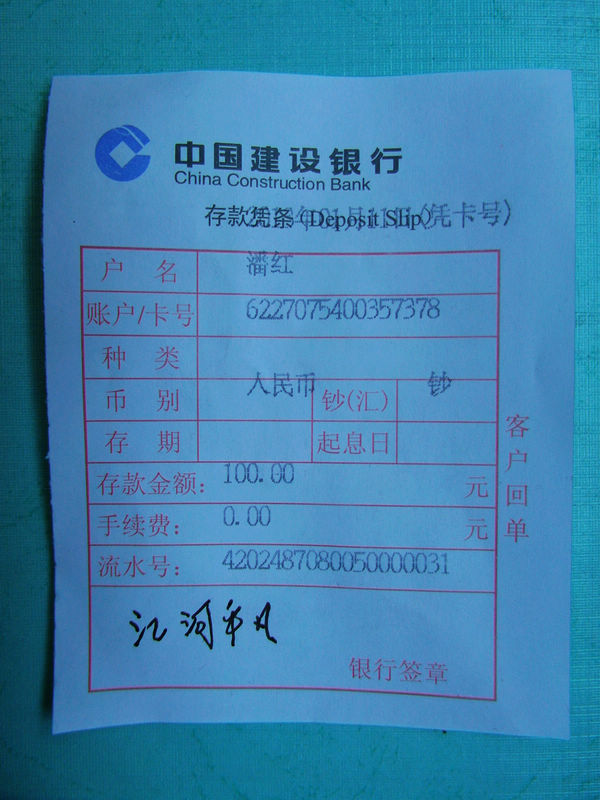 中国建设银行
China Construction Bank
存款凭条(Deposit Slip)
年01月11日(凭卡号)
户 名 潘红
账户/卡号 6227075400357378
种 类
币 别 人民币 钞(汇) 钞
存 期 起息日
存款金额: 100.00 元
手续费: 0.00 元
流水号: 4202487080050000031
江河
银行签章
客户回单